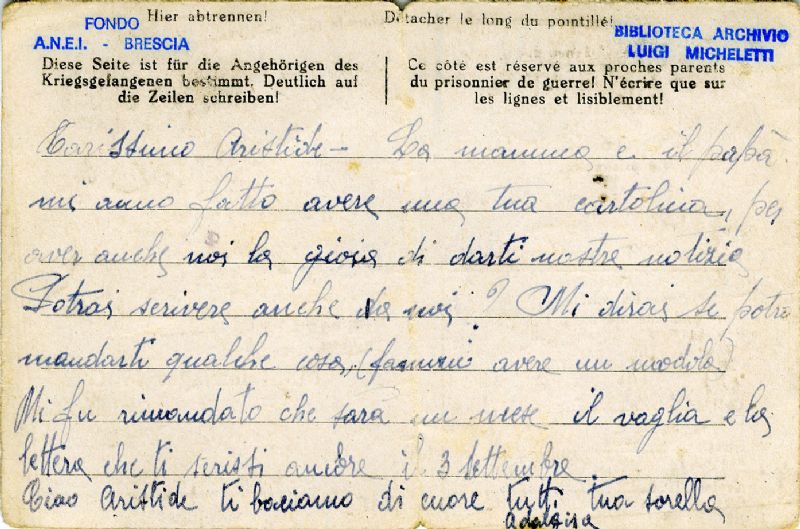 FONDO
A.N.E.I. - BRESCIA
Hier abtrennen!
Détacher le long du pointillé!
BIBLIOTECA ARCHIVIO
LUIGI MICHELETTI
Diese Seite ist für die Angehörigen des
Kriegsgefangenen bestimmt. Deutlich auf
die Zeilen schreiben!
Ce côté est réservé aux proches parents
du prisonnier de guerre! N'écrire que sur
les lignes et lisiblement!
Carissimo Aristide - La mamma e il papà
mi anno fatto avere una tua cartolina, per
aver anche noi la gioia di darti nostre notizie
Potrai scrivere anche a noi? Mi dirai se potrò
mandarti qualche cosa, ( avere un modolo)
Mi fu rimandato che sarà un mese il vaglia e la
lettera che ti scrissi ancore il 3 settembre.
Ciao Aristide ti baciamo di cuore tutti tua sorella
Adalgisa